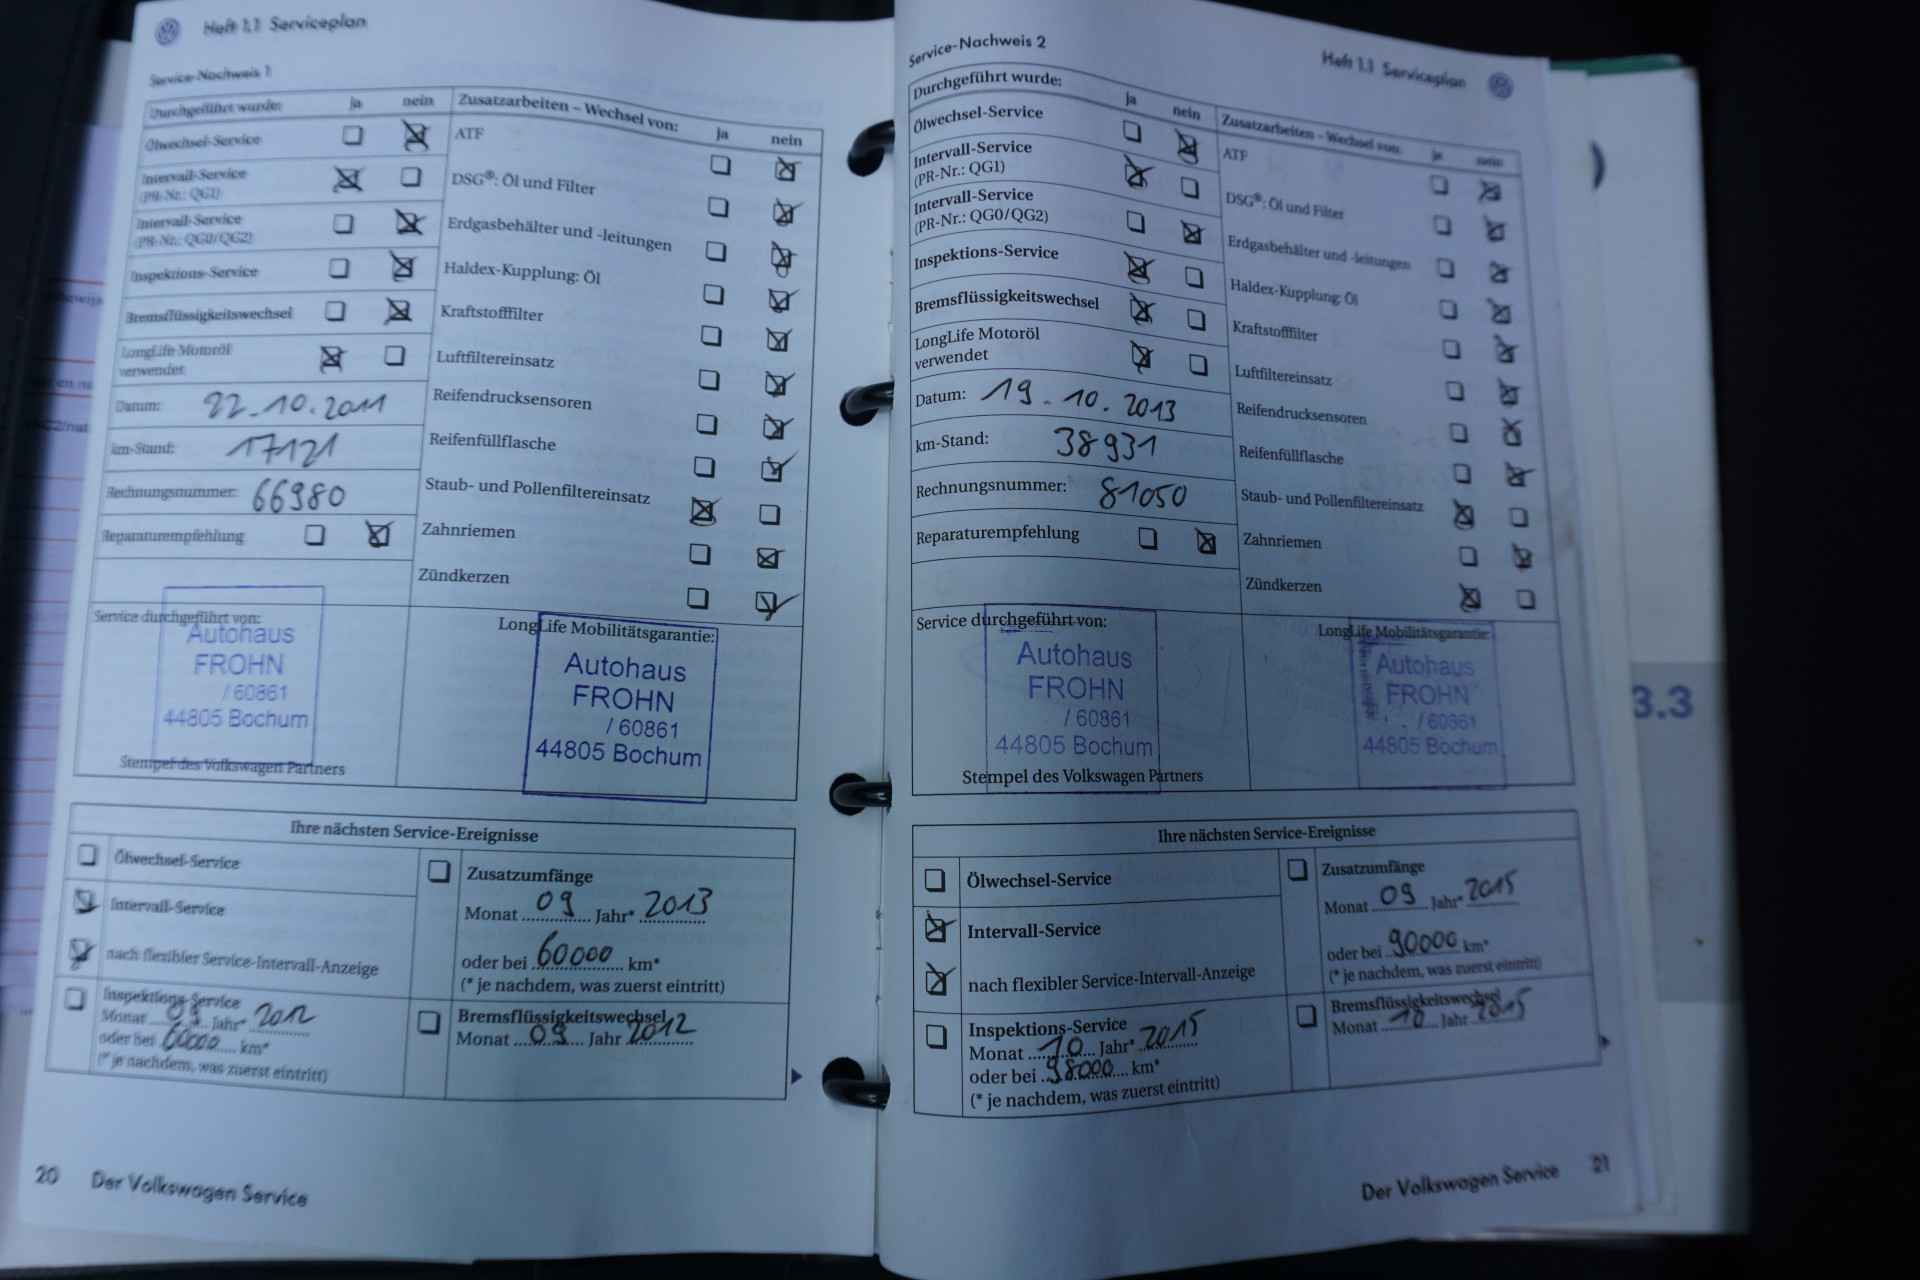 Heft 1.1 Serviceplan
Service-Nachweis 1
Durchgeführt wurde: ja nein
Ölwechsel-Service
Intervall-Service
(PR-Nr.: QG1)
Intervall-Service
(PR-Nr.: QG0/QG2)
Inspektions-Service
Bremsflüssigkeitswechsel
LongLife Motoröl
verwendet
Datum: 22.10.2011
km-Stand: 17121
Rechnungsnummer: 66980
Reparaturempfehlung
Zusatzarbeiten – Wechsel von: ja nein
ATF
DSG®: Öl und Filter
Erdgasbehälter und -leitungen
Haldex-Kupplung: Öl
Kraftstofffilter
Luftfiltereinsatz
Reifendrucksensoren
Reifenfüllflasche
Staub- und Pollenfiltereinsatz
Zahnriemen
Zündkerzen
Service durchgeführt von:
Autohaus
FROHN
/ 60861
44805 Bochum
Stempel des Volkswagen Partners
LongLife Mobilitätsgarantie:
Autohaus
FROHN
/ 60861
44805 Bochum
Ihre nächsten Service-Ereignisse
Ölwechsel-Service
Intervall-Service
nach flexibler Service-Intervall-Anzeige
Inspektions-Service
Monat 09 Jahr* 2012
oder bei 60000 km*
(* je nachdem, was zuerst eintritt)
Zusatzumfänge
Monat 09 Jahr* 2013
oder bei 60000 km*
(* je nachdem, was zuerst eintritt)
Bremsflüssigkeitswechsel
Monat 09 Jahr 2012
20 Der Volkswagen Service
Service-Nachweis 2
Heft 1.1 Serviceplan
Durchgeführt wurde: ja nein
Ölwechsel-Service
Intervall-Service
(PR-Nr.: QG1)
Intervall-Service
(PR-Nr.: QG0/QG2)
Inspektions-Service
Bremsflüssigkeitswechsel
LongLife Motoröl
verwendet
Datum: 19.10.2013
km-Stand: 38931
Rechnungsnummer: 81050
Reparaturempfehlung
Zusatzarbeiten – Wechsel von: ja nein
ATF
DSG®: Öl und Filter
Erdgasbehälter und -leitungen
Haldex-Kupplung: Öl
Kraftstofffilter
Luftfiltereinsatz
Reifendrucksensoren
Reifenfüllflasche
Staub- und Pollenfiltereinsatz
Zahnriemen
Zündkerzen
Service durchgeführt von:
Autohaus
FROHN
/ 60861
44805 Bochum
Stempel des Volkswagen Partners
LongLife Mobilitätsgarantie:
Autohaus
FROHN
/ 60861
44805 Bochum
Ihre nächsten Service-Ereignisse
Ölwechsel-Service
Intervall-Service
nach flexibler Service-Intervall-Anzeige
Inspektions-Service
Monat 10 Jahr* 2015
oder bei 98000 km*
(* je nachdem, was zuerst eintritt)
Zusatzumfänge
Monat 09 Jahr* 2015
oder bei 90000 km*
(* je nachdem, was zuerst eintritt)
Bremsflüssigkeitswechsel
Monat 10 Jahr 2015
Der Volkswagen Service 21
3.3